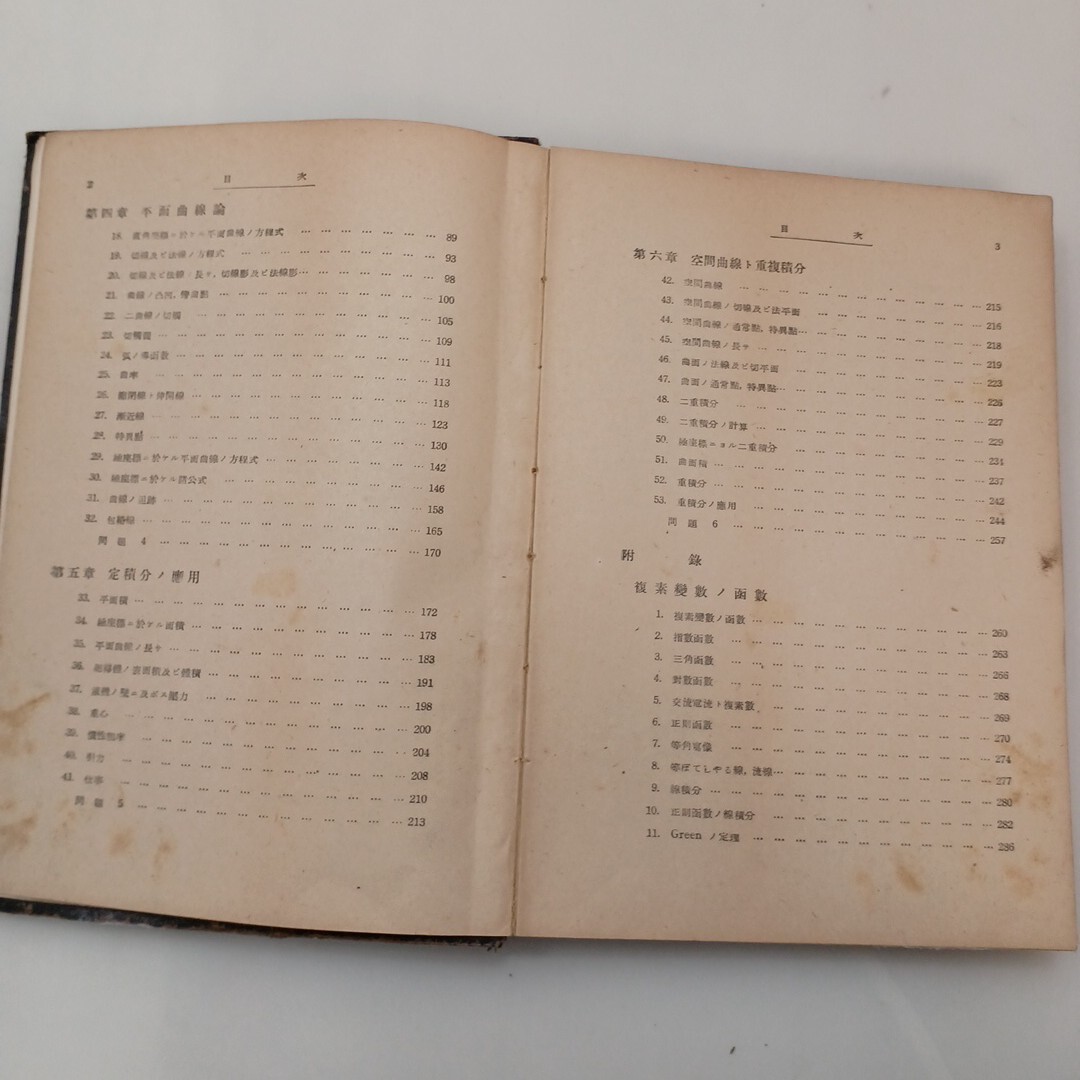 2 目次
第四章 平面曲線論
18. 直角座標ニ於ケル平面曲線ノ方程式 … 89
19. 切線及ビ法線ノ方程式 … 93
20. 切線及ビ法線ノ長サ, 切線影及ビ法線影… 98
21. 曲線ノ凸凹, 彎曲點 … 100
22. 二曲線ノ切觸 … 105
23. 切觸圓 … 109
24. 弧ノ導函數 … 111
25. 曲率 … 113
26. 縮閉線ト伸開線 … 118
27. 漸近線 … 123
28. 特異點 … 130
29. 極座標ニ於ケル平面曲線ノ方程式 … 142
30. 極座標ニ於ケル諸公式 … 146
31. 曲線ノ追跡 … 158
32. 包絡線 … 165
問題 4 … 170
第五章 定積分ノ應用
33. 平面積 … 172
34. 極座標ニ於ケル面積 … 178
35. 平面曲線ノ長サ … 183
36. 表面積及ビ體積 … 191
37. ノ壁ニ及ボス壓力 … 198
38. 重心 … 200
39. 慣性能率 … 204
40. 引力 … 208
41. 仕事 … 210
問題 5 … 213
目次 3
第六章 空間曲線ト重複積分
42. 空間曲線 … 215
43. 空間曲線ノ切線及ビ法平面 … 216
44. 空間曲線ノ通常點, 特異點… 218
45. 空間曲線ノ長サ … 219
46. 曲面ノ法線及ビ切平面 … 223
47. 曲面ノ通常點, 特異點… 226
48. 二重積分 … 227
49. 二重積分ノ計算 … 229
50. 極座標ニヨル二重積分 … 234
51. 曲面積 … 237
52. 重積分 … 242
53. 重積分ノ應用 … 244
問題 6 … 257
附錄
複素變數ノ函數
1. 複素變數ノ函數 … 260
2. 指數函數 … 263
3. 三角函數 … 266
4. 對數函數 … 268
5. 交流電流ト複素數 … 269
6. 正則函數 … 270
7. 等角寫像 … 274
8. 等ぽてしやる線, 流線… 277
9. 線積分 … 280
10. 正則函數ノ線積分 … 282
11. Green ノ定理 … 286